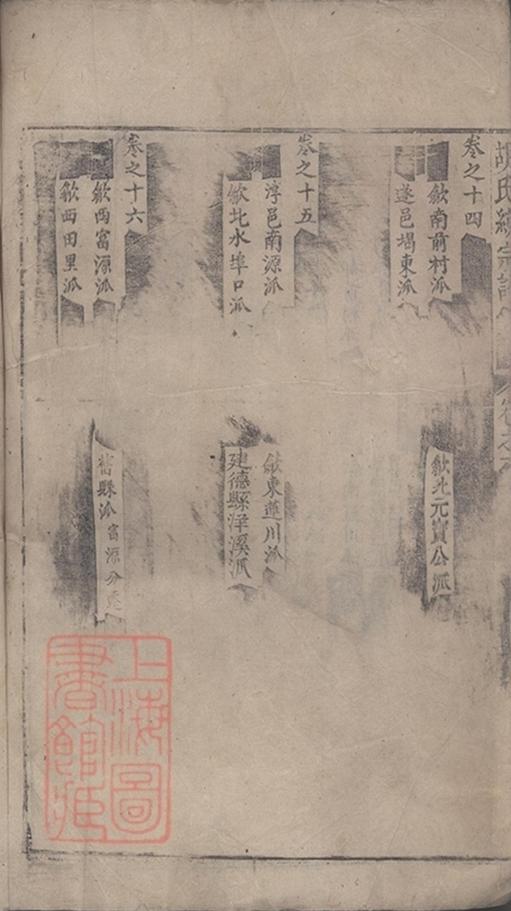 卷之十四
歙南前村派
遂邑堨東派
歙北元寶公派
卷之十五
淳邑南源派
歙北水埠口派
歙東蓮川派
建德縣洋溪派
卷之十六
歙西富源派
歙西田里派
舊縣派 富源分遷
上海圖
書館藏